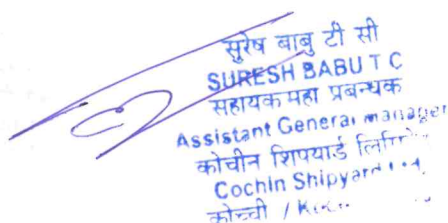 सुरेष बाबु टी सी
SURESH BABU T C
सहायक महा प्रबन्धक
Assistant General manager
कोचीन शिपयार्ड
Cochin Shipyard
कोच्ची /